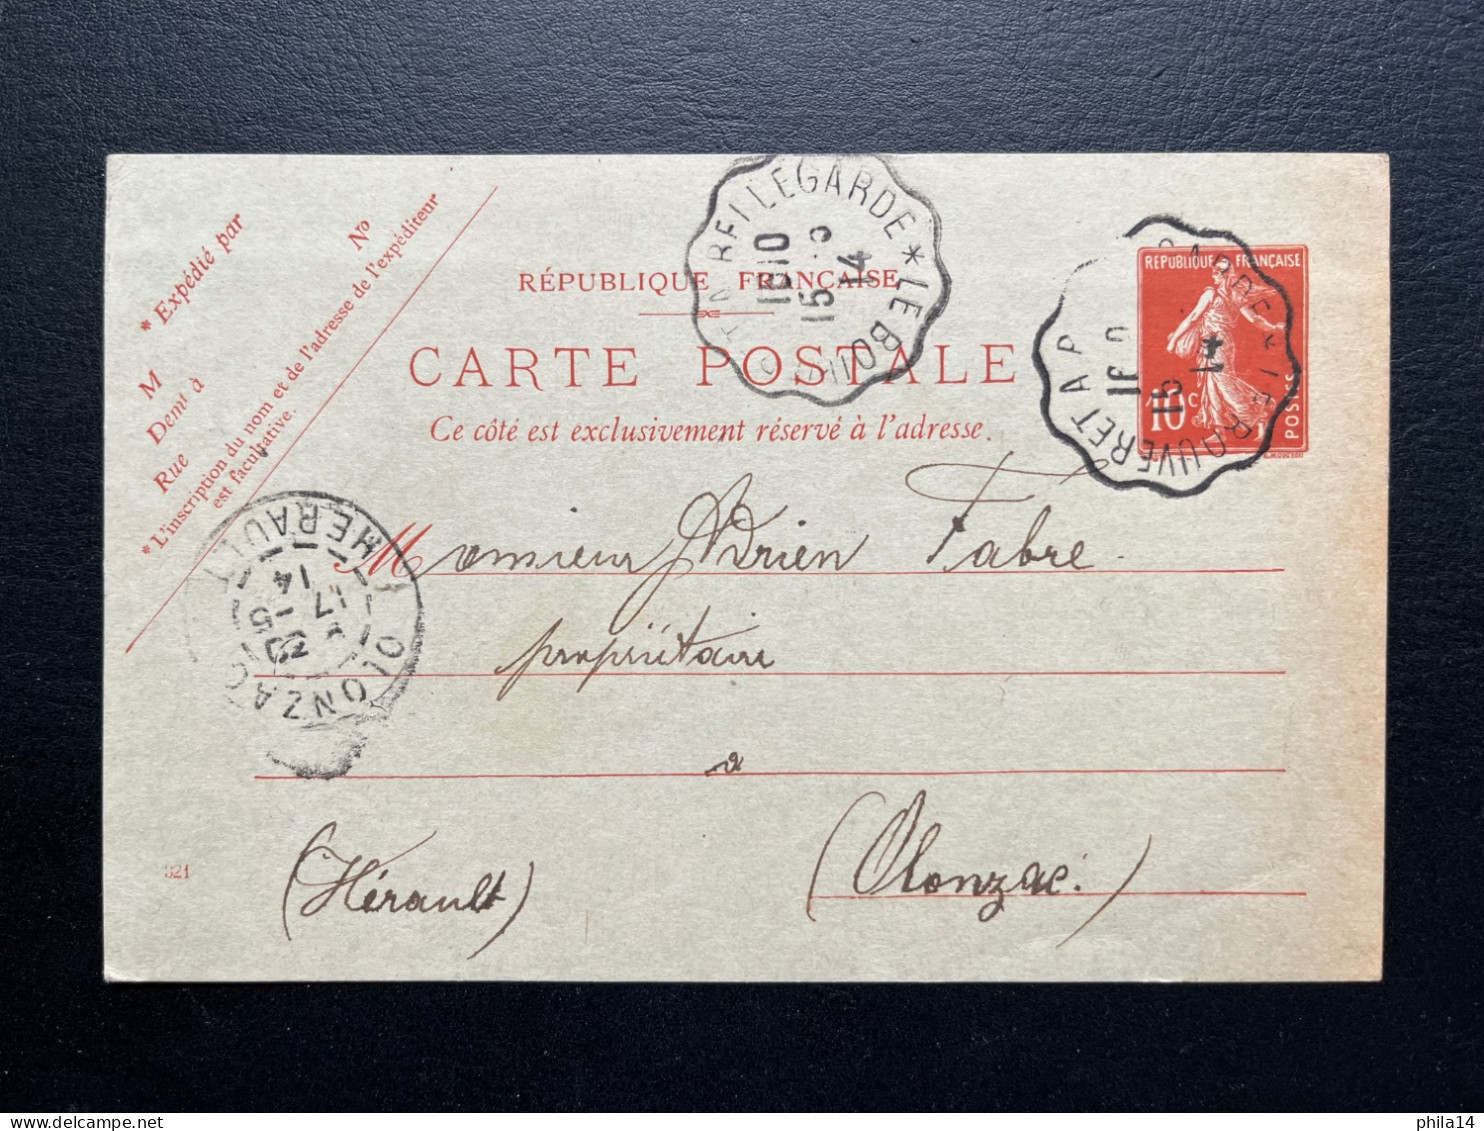 * Expédié par
M
Demt à
Rue
No
*L'inscription du nom et de l'adresse de l'expéditeur
est facultative.
RÉPUBLIQUE FRANÇAISE
CARTE POSTALE
Ce côté est exclusivement réservé à l'adresse.
BELLEGARDE * LE BOU
1810
15 - 5
14
RÉPUBLIQUE FRANÇAISE
10 c
POSTES
LE BRAUVERET A P
15
14
OLONZAC
HERAULT
17 - 5
14
Monsieur Adrien Fabre.
propriétaire
à
(Olonzac.)
(Hérault)
321
phila14